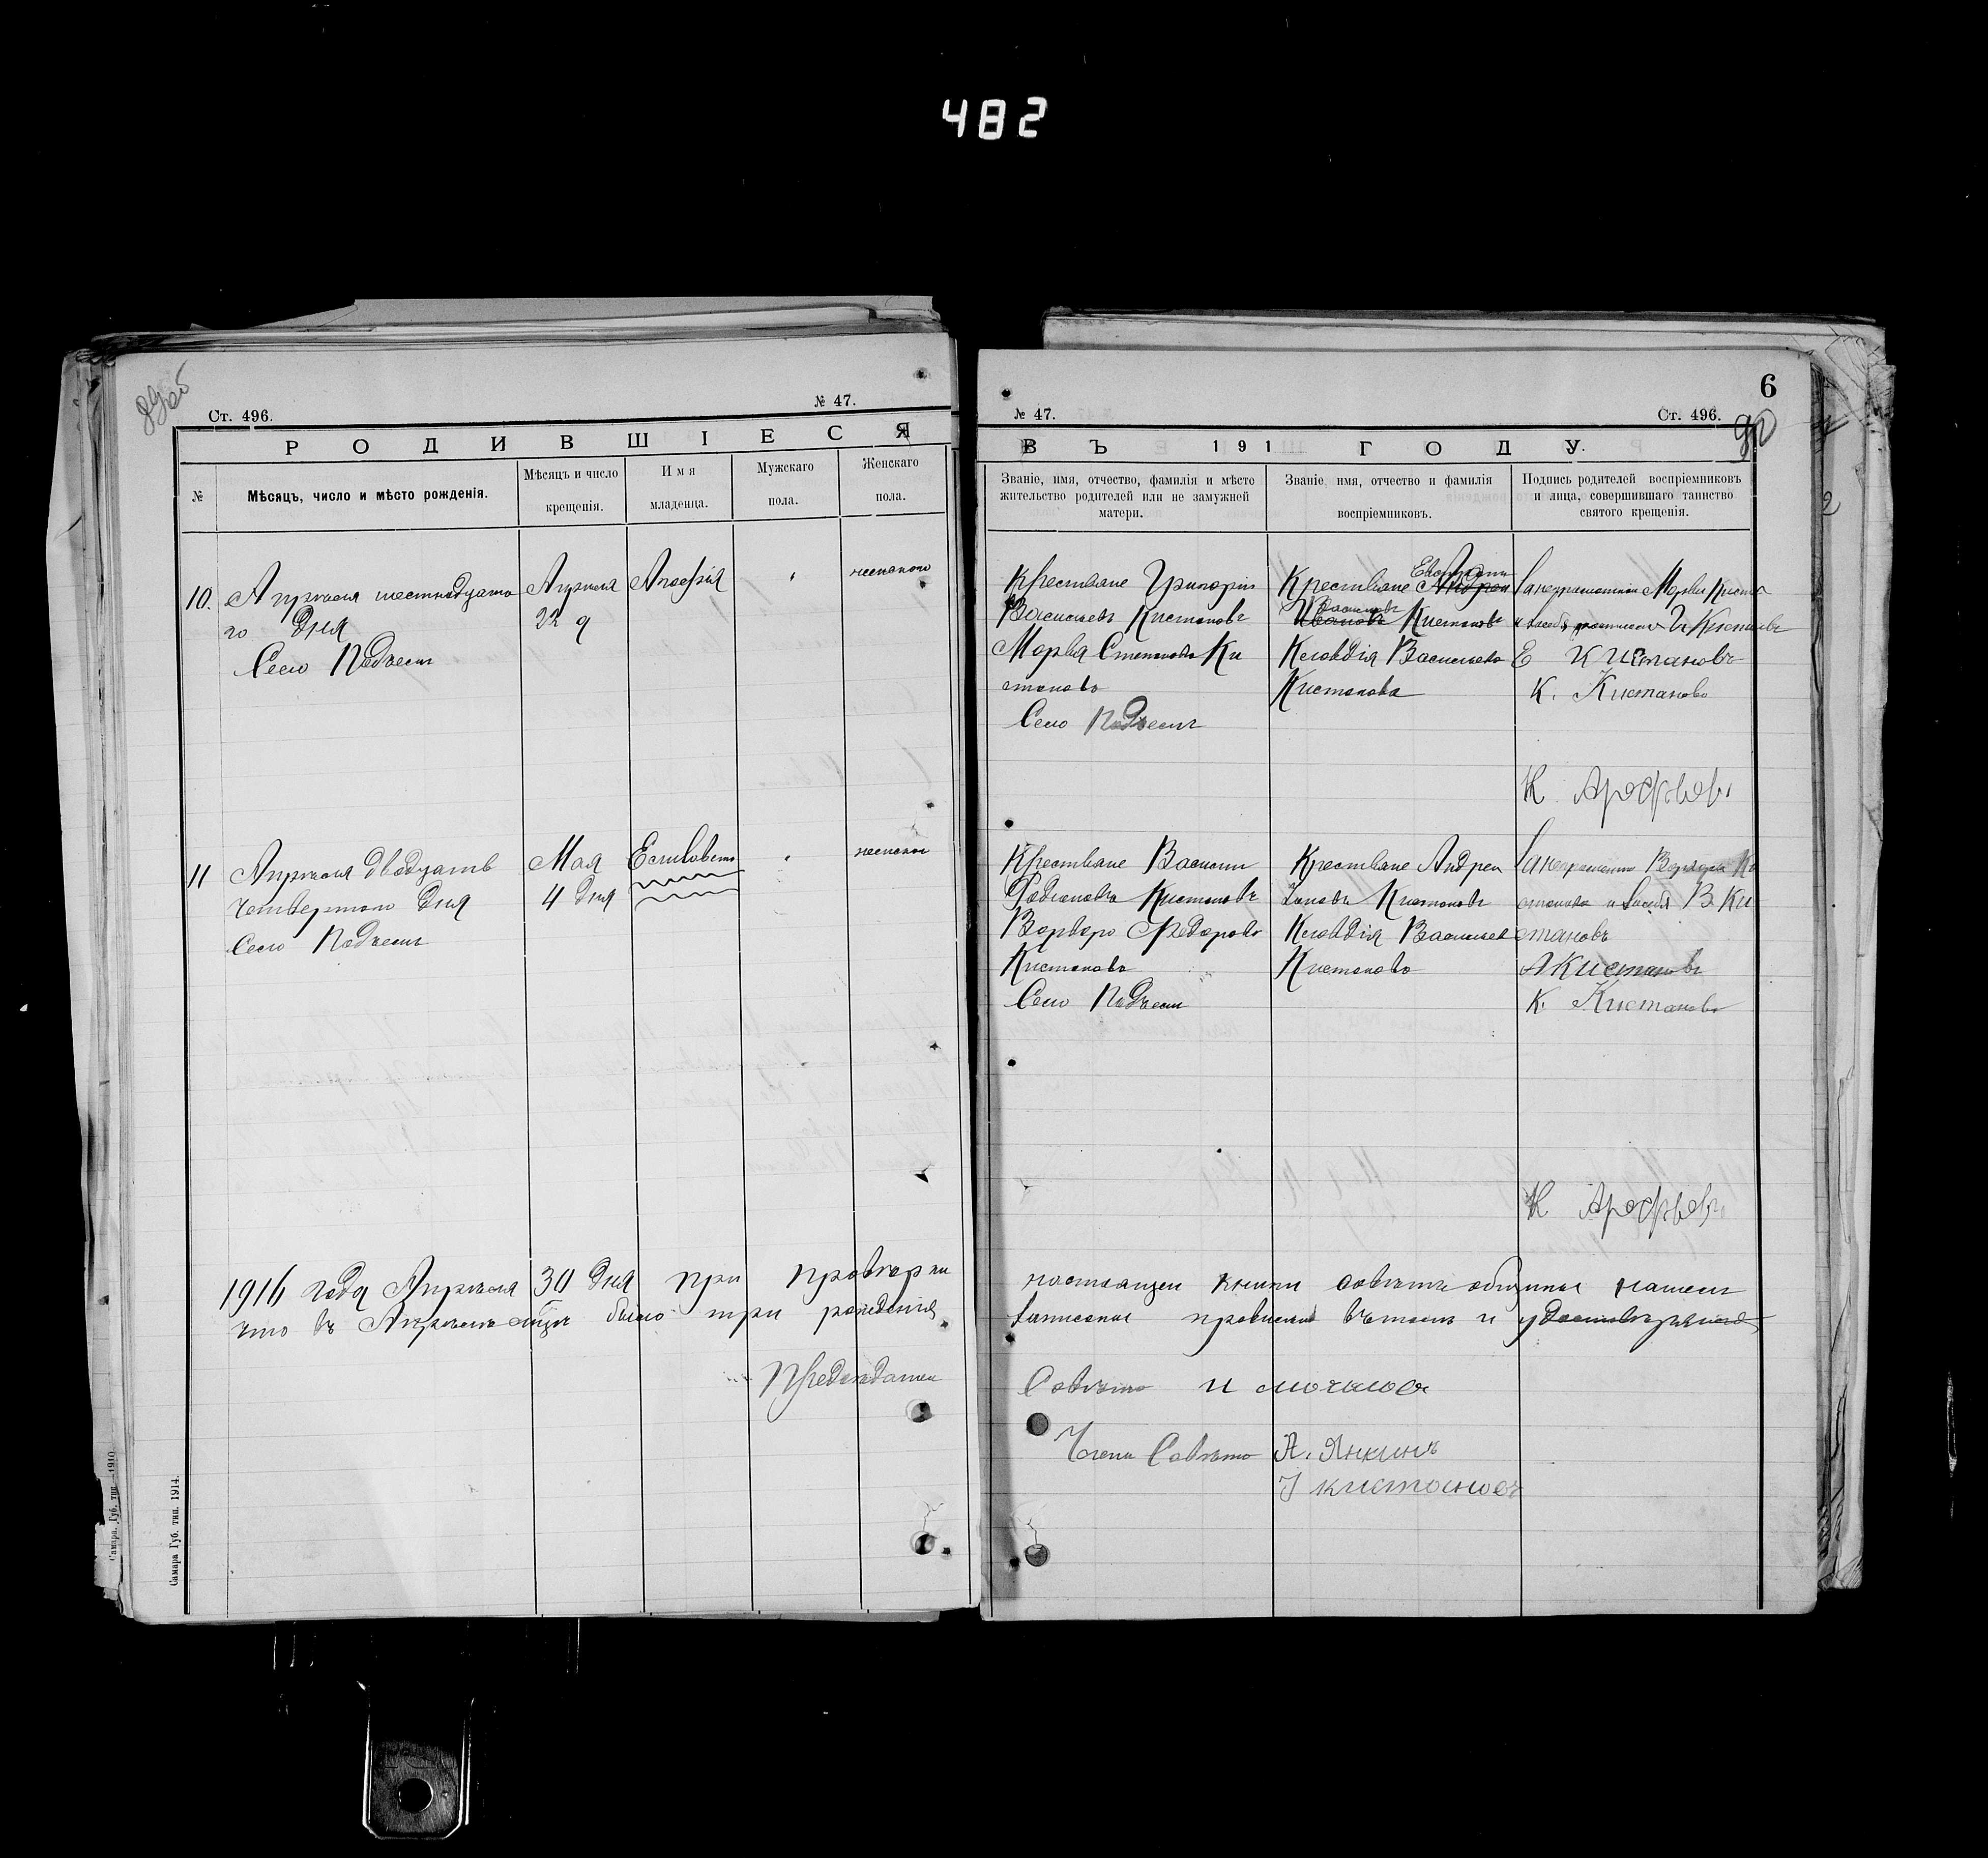 482
Ст. 496.
№ 47.
РОДИВШІЕСЯ
№
Мѣсяцъ, число и мѣсто рожденія.
Мѣсяцъ и число крещенія.
Имя младенца.
Мужскаго пола.
Женскаго пола.
10. Апреля шестнадцато
го дня
Село Подъем
Апреля
22 д
женскаго
11 Апреля двадцать
четвертого дня
Село Подъем
Мая
4 дня
Елизовета
женскаго
1916 года Апреля 30 дня при проверки
что въ Апреле было три рождения
Председатель
Самара Губ. тип. 1914.
Самара. Губ. тип. 1910
6
№ 47.
Ст. 496.
ВЪ 191 ГОДУ.
Званіе, имя, отчество, фамилія и мѣсто
жительство родителей или не замужней
матери.
Званіе, имя, отчество и фамилія
воспріемниковъ.
Подпись родителей воспріемниковъ
и лица, совершившаго таинство
святого крещенія.
Крестьяне Григорій
Васильевъ Кистановъ
Марѳа Степанова Ки
станова
Село Подъем
Крестьяне Андрей
Васильевъ
Ивановъ Кистановъ
Клавдія Васильева
Кистанова
Е Кистановъ
К. Кистанова
К Арефьевъ
Крестьяне Василий
Родионовъ Кистановъ
Варвара Федорова
Кистанова
Село Подъем
Крестьяне Андрей
Кистановъ
Клавдія Васильев
Кистанова
становъ
А Кистановъ
К. Кистанова
К Арефьевъ
настоящей книги советъ общины нашей
записаны правильно в чем и удостоверяем
Совета И Мочалов
Члены Совета А. Янкинъ
Кистановъ